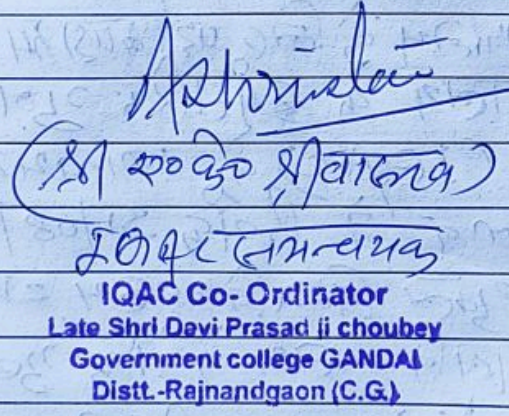 (श्री ए० के० श्रीवास्तव)
समन्वयक
IQAC Co- Ordinator
Late Shri Devi Prasad ji choubey
Government college GANDAI
Distt.-Rajnandgaon (C.G.)